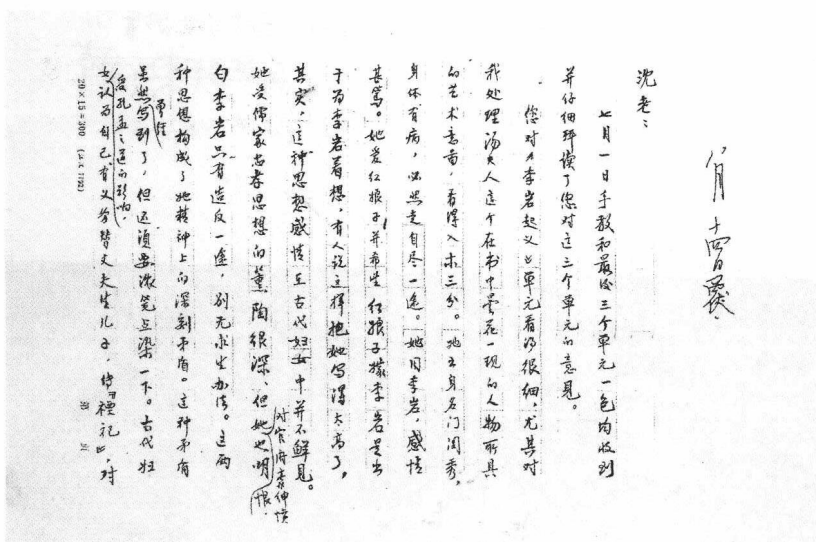 八月十四日覆
沈老：
七月一日手教和最后三个单元一包均收到
并仔细拜读了您对这三个单元的意见。
您对《李岩起义》单元看得很细，尤其对
我处理汤夫人这个在书中昙花一现的人物所具
的艺术意商，看得入木三分。她出身名门闺秀，
身体有病，必然走自尽一途。她同李岩，感情
甚笃。她爱红娘子并希望红娘子嫁李岩是出
于为李岩着想。有人说这样把她写得太高了，
其实，这种思想感情在古代妇女中并不鲜见。
她受儒家忠孝思想的熏陶很深，但她也明
对官府李仲信恨
白李岩只有造反一途，别无求生办法。这两
种思想构成了她精神上的深刻矛盾。这种矛盾
虽然写到了，但还须要浓笔点染一下。古代妇
受孔孟之道的影响，
女认为自己有义务替丈夫生儿子，《礼记》，对
20×15=300
第 页